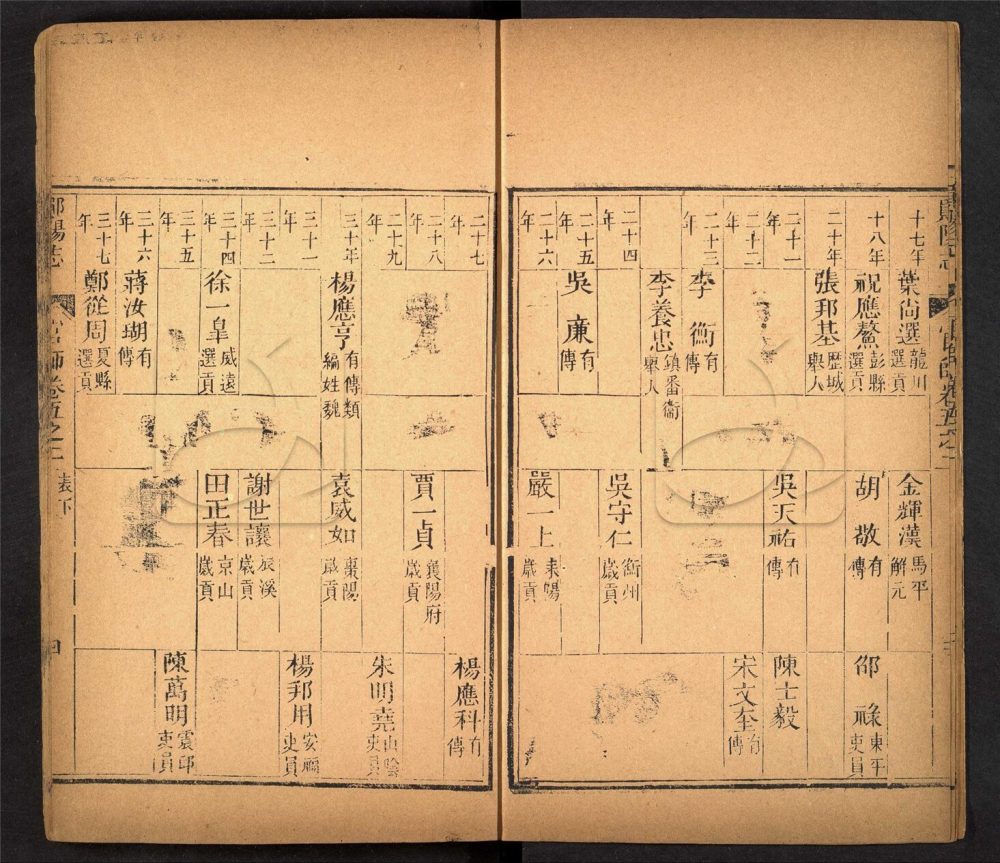 十七年 葉尚選 龍川選貢 金輝漢 馬平解元
十八年 祝應鰲 彭縣選貢 胡敬 有傳 邵祿 東平吏員
二十年 張邦基 歷城舉人
二十一年 吳天祐 有傳 陳士毅
二十二年 宋文奎 有傳
二十三年 李衡 有傳
李養忠 鎮番衞舉人
二十四 吳守仁 衡州歲貢
二十五年 吳亷 有傳
二十六年 嚴一上 耒陽歲貢
二十七年 楊應科 有傳
二十八年 賈一貞 襄陽府歲貢
二十九年 朱明堯 山陰吏員
三十年 楊應亨 有傳類編姓魏 袁威如 棗陽歲貢
三十一年 楊邦用 安福吏員
三十二年 謝世讓 辰溪歲貢
三十四年 徐一皐 威遠選貢 田正春 京山歲貢
三十五年 陳萬明 震邱吏員
三十六年 蔣汝瑚 有傳
三十七年 鄭從周 夏縣選貢
陽志 官師卷五之二 表下 四